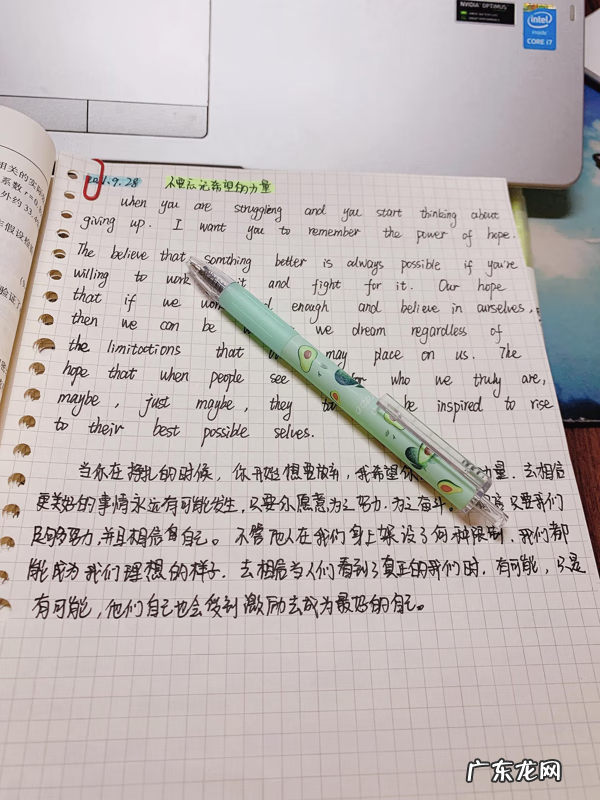 NVIDIA OPTIMUS
intel
inside
CORE i7
相关的实际
系数
外约33
假设检
验证
.9.28 不要忘记希望的力量
when you are struggling and you start thinking about
giving up. I want you to remember the power of hope.
The believe that somthing better is always possible if you're
willing to work it and fight for it. Our hope
that if we enough and believe in ourselves,
then we can be we dream regardless of
the limitactions that may place on us. The
hope that when people see who we truly are,
maybe, just maybe, they be inspired to rise
to their best possible selves.
当你在挣扎的时候，你开始想要放弃，我希望你 力量. 去相信
更美好的事情永远有可能发生，只要你愿意为之努力，为之奋斗。 只要我们
足够努力，并且相信自己。不管他人在我们身上 设了何种限制，我们都
能成为我们理想的样子，去相信当人们看到了真正的我们时，有可能，只是
有可能，他们自己也会受到激励去成为最好的自己。
广东龙网